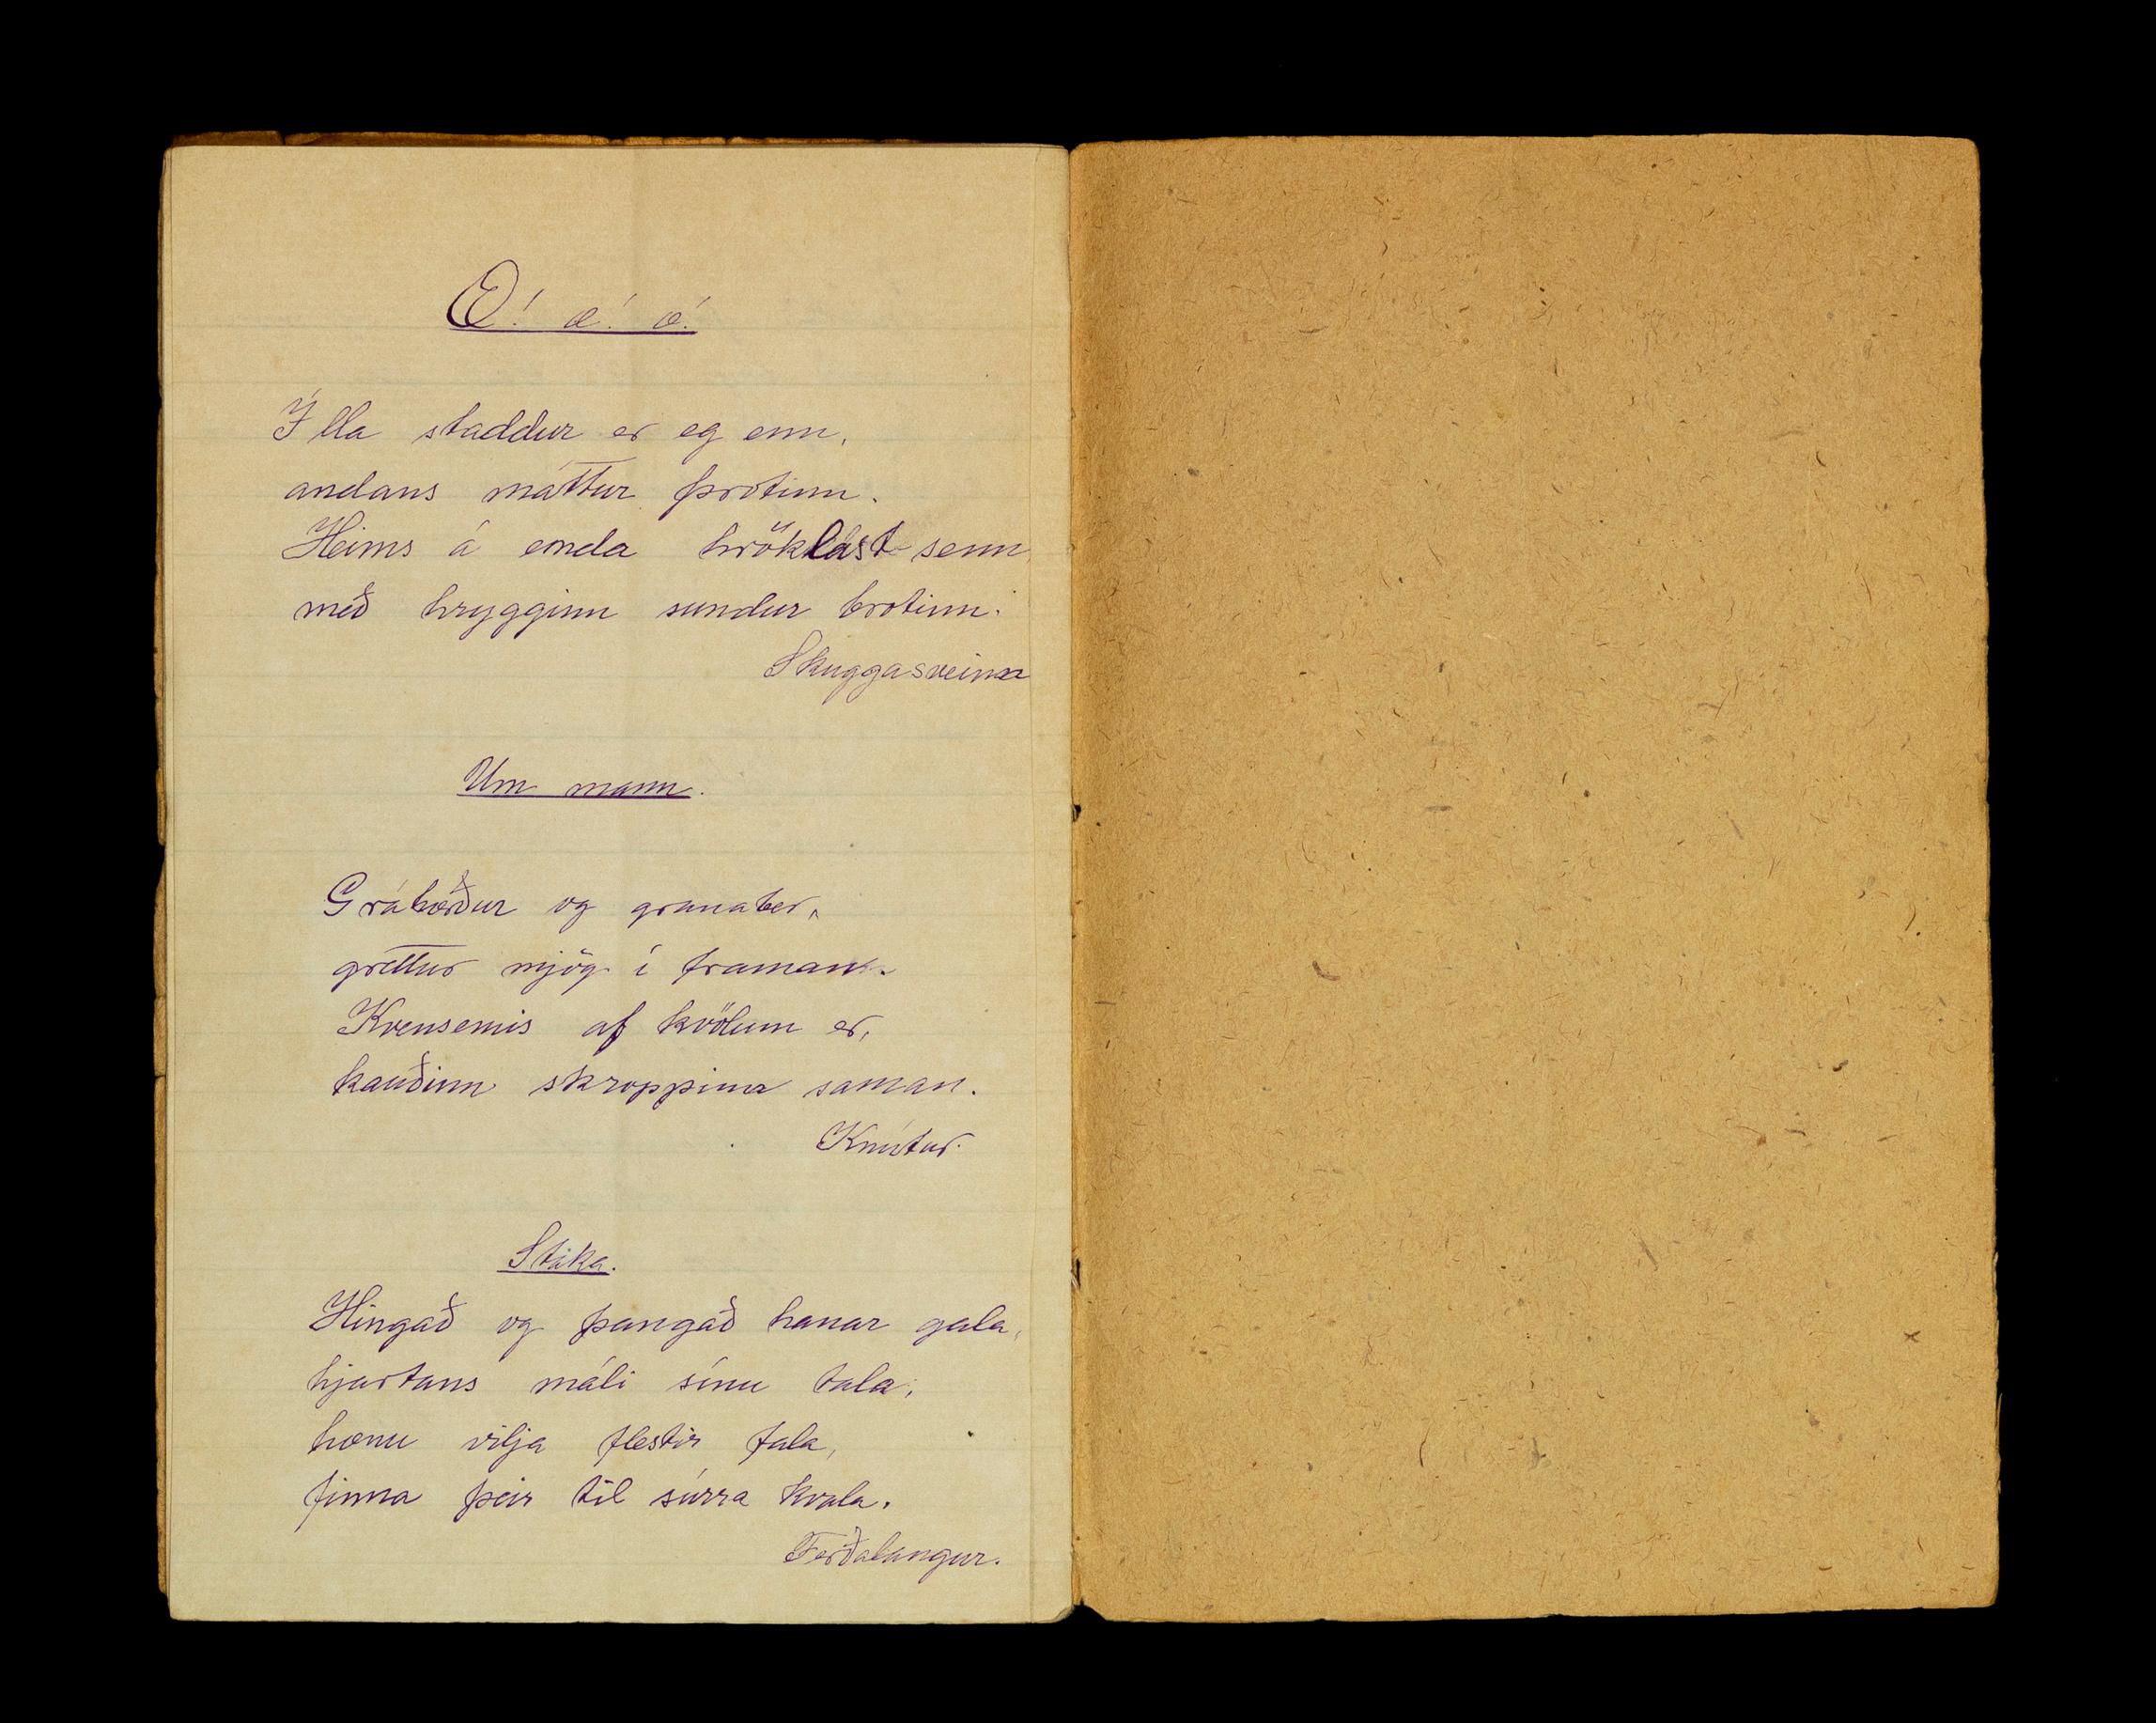 Æ! æ! æ!
Ílla staddur er eg enn,
andans máttur þrotinn.
Heims á enda hröklast senn
með hrygginn sundur brotinn.
Skuggasveinn
Um mann.
Gráhærður og granaber,
grettur mjög í framan.
Kvensemis af kvölum er,
kauðinn skroppinn saman.
Knútur.
Staka.
Hingað og þangað hanar gala,
hjartans máli sínu tala,
hænu vilja flestir fala,
finna þeir til súrra kvala.
Ferðalangur.